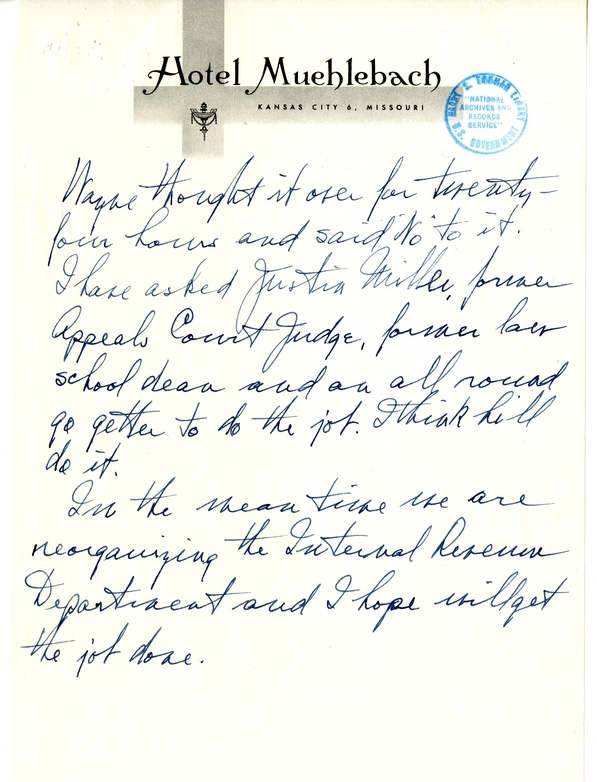 Hotel Muehlebach
KANSAS CITY 6, MISSOURI
HARRY S. TRUMAN LIBRARY
"NATIONAL
ARCHIVES AND
RECORDS
SERVICE"
U.S. GOVERNMENT
Wayne thought it over for twenty-
four hours and said "No" to it.
I have asked Justin Miller, former
Appeals Court Judge, former law
school dean and an all round
go getter to do the job. I think hill
do it.
In the mean time we are
reorganizing the Internal Revenue
Department and I hope will get
the job done.